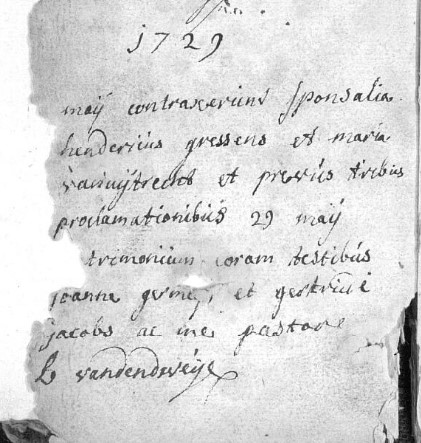 1729
maij contraxerunt sponsalia
hendericus gressens et maria
vanuijtrecht et previis tribus
proclamationibus 29 maij
trimonium coram testibus
joanne et gertrude
jacobs ac me pastore